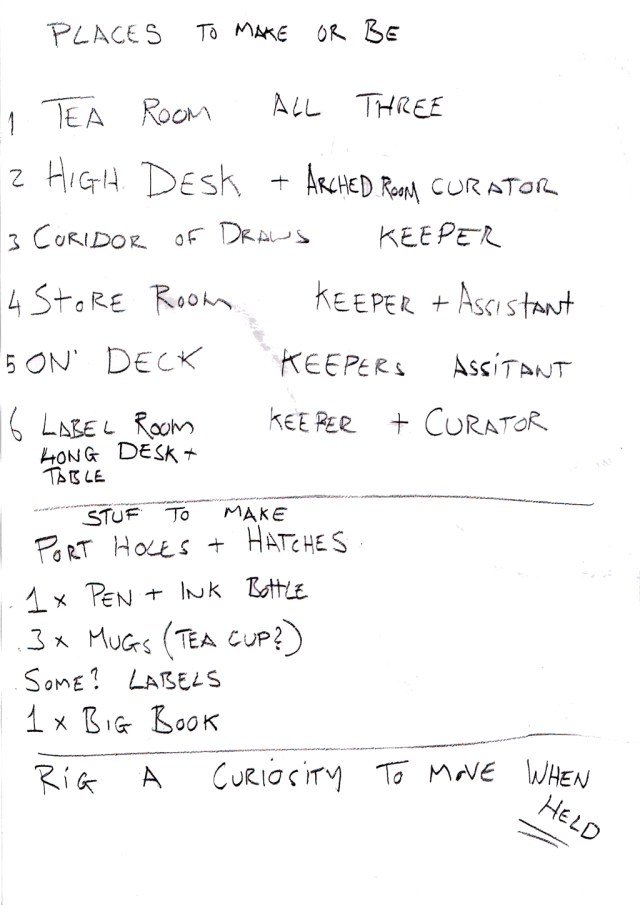 PLACES TO MAKE OR BE
1 TEA ROOM ALL THREE
2 HIGH DESK + ARCHED ROOM CURATOR
3 CORIDOR OF DRAWS KEEPER
4 STORE ROOM KEEPER + ASSISTANT
5 ON' DECK KEEPERS ASSITANT
6 LABEL ROOM KEEPER + CURATOR
LONG DESK +
TABLE
STUF TO MAKE
PORT HOLES + HATCHES
1 x PEN + INK BOTTLE
3 x MUGS (TEA CUP?)
SOME? LABELS
1 x BIG BOOK
RIG A CURIOSITY TO MOVE WHEN
HELD